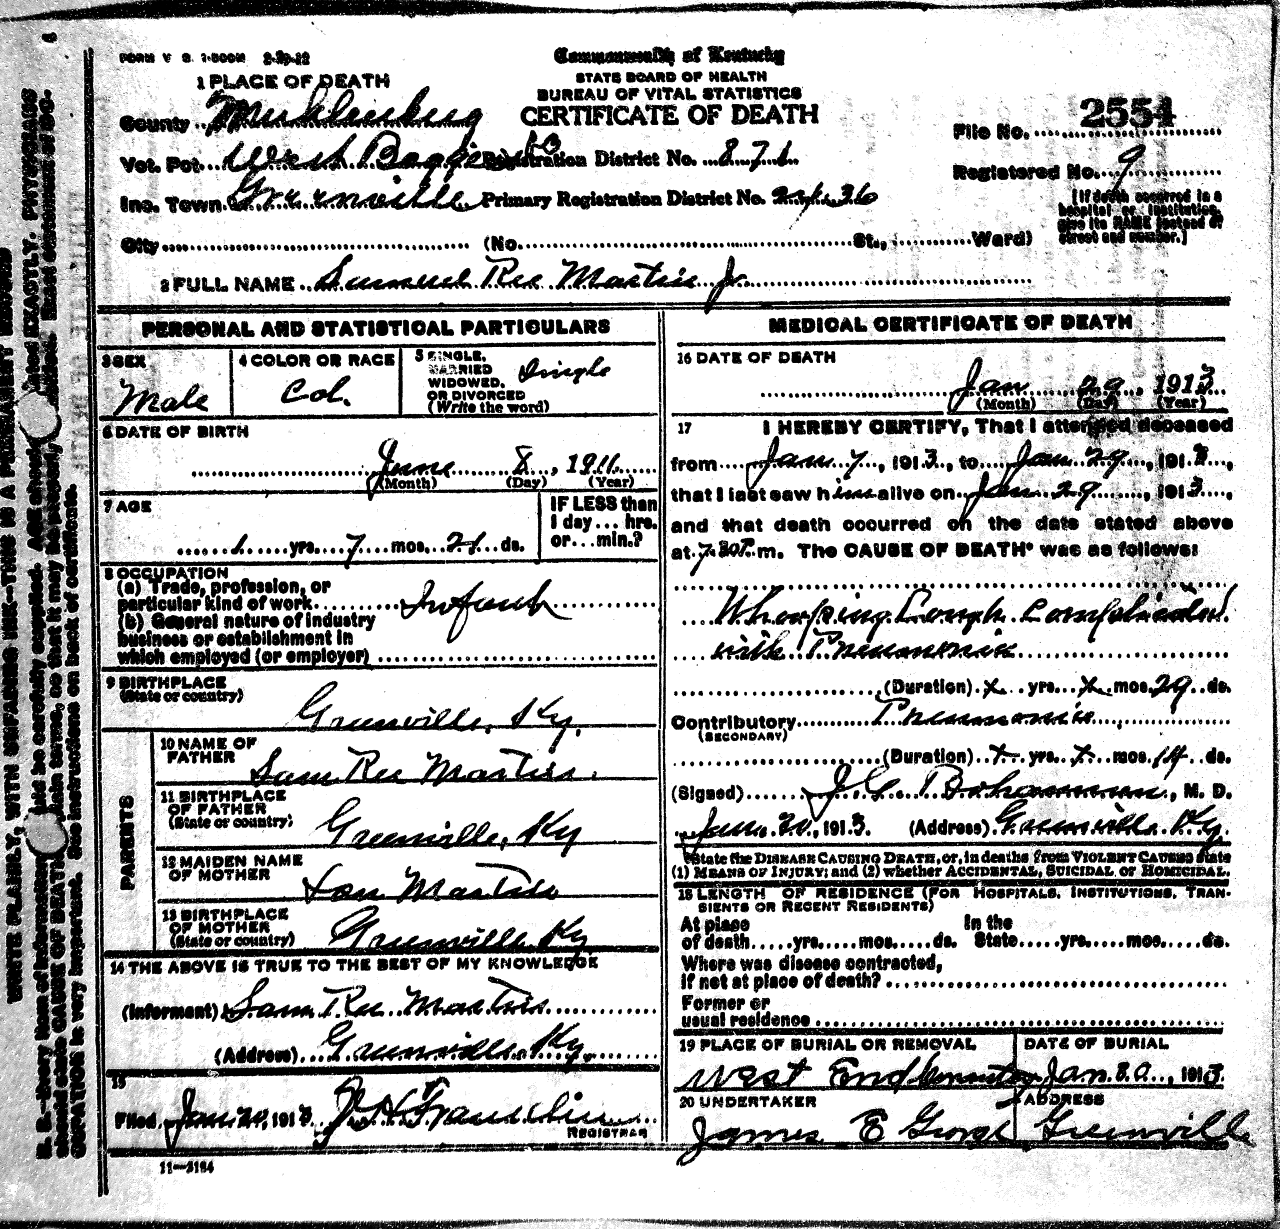 FORM V. S. 1-500M 2-20-12
Commonwealth of Kentucky
STATE BOARD OF HEALTH
BUREAU OF VITAL STATISTICS
CERTIFICATE OF DEATH
1 PLACE OF DEATH
County Muhlenburg
Vot. Pct. West Registration District No. 871
Inc. Town Greenville Primary Registration District No.
City (No. St., Ward)
File No. 2554
Registered No. 9
[If death occurred in a hospital or institution, give its NAME instead of street and number.]
2 FULL NAME Samuel Ree Martin Jr.
PERSONAL AND STATISTICAL PARTICULARS
3 SEX Male
4 COLOR OR RACE Col.
5 SINGLE, MARRIED WIDOWED, OR DIVORCED (Write the word) Single
6 DATE OF BIRTH
June 8, 1911
(Month) (Day) (Year)
7 AGE
1 yrs. 7 mos. 21 ds.
IF LESS than 1 day... hrs. or... min.?
8 OCCUPATION
(a) Trade, profession, or
particular kind of work Infant
(b) General nature of industry
business or establishment in
which employed (or employer)
9 BIRTHPLACE
(State or country)
Greenville, Ky.
PARENTS
10 NAME OF FATHER
Sam Ree Martin.
11 BIRTHPLACE OF FATHER
(State or country)
Greenville, Ky
12 MAIDEN NAME OF MOTHER
Martin
13 BIRTHPLACE OF MOTHER
(State or country)
Greenville, Ky
14 THE ABOVE IS TRUE TO THE BEST OF MY KNOWLEDGE
(Informant) Sam Ree Martin
(Address) Greenville, Ky.
15
Filed Jan 30, 1913
REGISTRAR
11—3184
MEDICAL CERTIFICATE OF DEATH
16 DATE OF DEATH
Jan 29, 1913
(Month) (Day) (Year)
17 I HEREBY CERTIFY, That I attended deceased
from Jan 7, 1913, to Jan 29, 1913,
that I last saw him alive on Jan 29, 1913,
and that death occurred on the date stated above
at 7.30 P. m. The CAUSE OF DEATH* was as follows:
Whooping Cough Complicated
with Pneumonia
(Duration) x yrs. x mos. 29 ds.
Contributory Pneumonia
(SECONDARY)
(Duration) x yrs. x mos. 14 ds.
(Signed) J. G. Bohannon, M. D.
Jan. 30, 1913. (Address) Greenville, Ky.
*State the DISEASE CAUSING DEATH, or, in deaths from VIOLENT CAUSES state
(1) MEANS OF INJURY; and (2) whether ACCIDENTAL, SUICIDAL or HOMICIDAL.
18 LENGTH OF RESIDENCE (FOR HOSPITALS, INSTITUTIONS, TRAN-
SIENTS OR RECENT RESIDENTS)
At place In the
of death yrs. mos. ds. State yrs. mos. ds.
Where was disease contracted,
if not at place of death?
Former or
usual residence
19 PLACE OF BURIAL OR REMOVAL
West End Cemetery
DATE OF BURIAL
Jan. 30, 1913
20 UNDERTAKER
James E George
ADDRESS
Greenville
WRITE PLAINLY, WITH UNFADING INK—THIS IS A PERMANENT RECORD
N. B.—Every item of information should be carefully supplied. AGE should be stated EXACTLY. PHYSICIANS
should state CAUSE OF DEATH in plain terms, so that it may be properly classified. Exact statement of OC-
CUPATION is very important. See instructions on back of certificate.